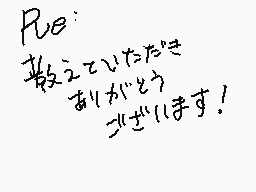 Pue:
教えていただき
ありがとう
ございます!